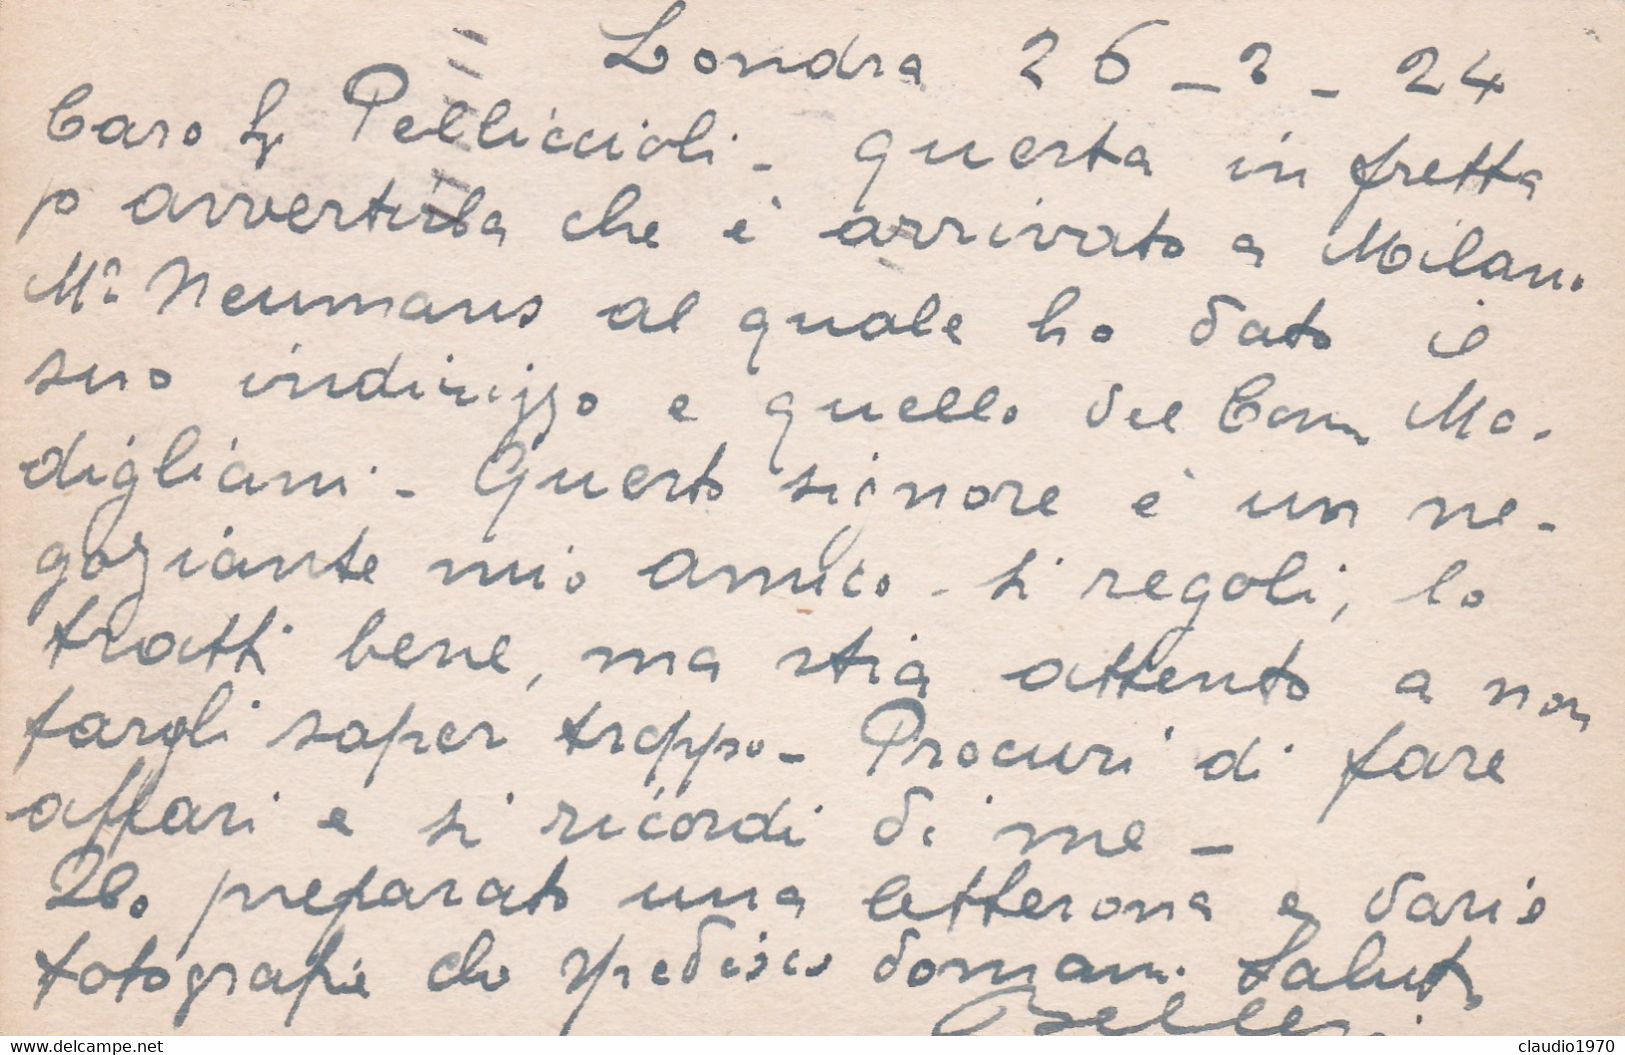 Londra 26-2-24
Caro Sg Pelliccioli - questa in fretta
p avvertirla che è arrivato a Milano
Mr Neumans al quale ho dato il
suo indirizzo e quello del Com Mo-
digliani - Questo signore è un ne-
goziante mio amico - si regoli, lo
tratti bene, ma stia attento a non
fargli saper troppo - Procuri di fare
affari e si ricordi di me -
Ho preparato una letterona e varie
fotografie che spedisco domani. Saluti
Bellesi
www.delcampe.net
claudio1970